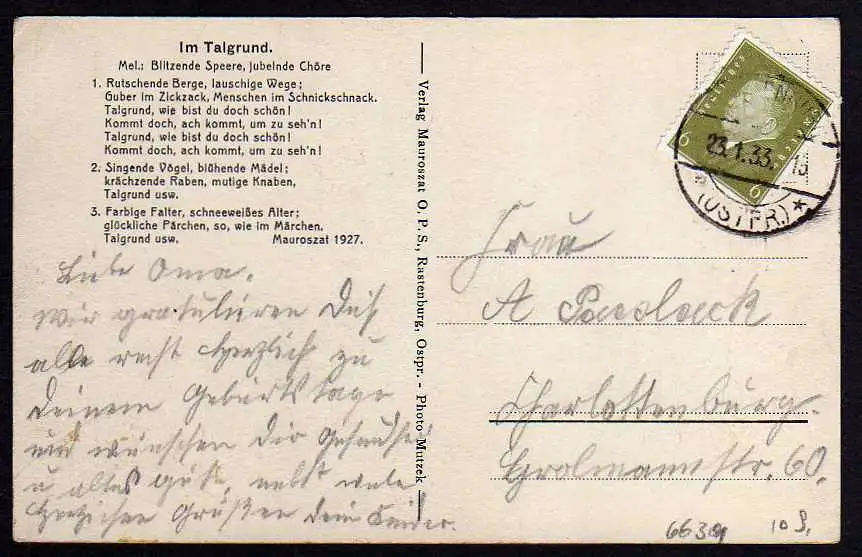 Im Talgrund.
Mel.: Blitzende Speere, jubelnde Chöre
1. Rutschende Berge, lauschige Wege;
Guber im Zickzack, Menschen im Schnickschnack.
Talgrund, wie bist du doch schön!
Kommt doch, ach kommt, um zu seh'n!
Talgrund, wie bist du doch schön!
Kommt doch, ach kommt, um zu seh'n!
2. Singende Vögel, blühende Mädel;
krächzende Raben, mutige Knaben,
Talgrund usw.
3. Farbige Falter, schneeweißes Alter;
glückliche Pärchen, so, wie im Märchen.
Talgrund usw. Mauroszat 1927.
Liebe Oma.
Wir gratulieren Dich
alle recht herzlich zu
Deinem Geburtstage
und wünschen Dir Gesundheit
u alles gute, nebst viele
herzlichen Grüßen Dein
Verlag Mauroszat O. P. S., Rastenburg, Ostpr. - Photo-Mutzek
Deutsches Reich
6 6
23.1.33. 
* (OSTPR.) *
Frau
A
Charlottenburg.
Grolmannstr. 60.
10